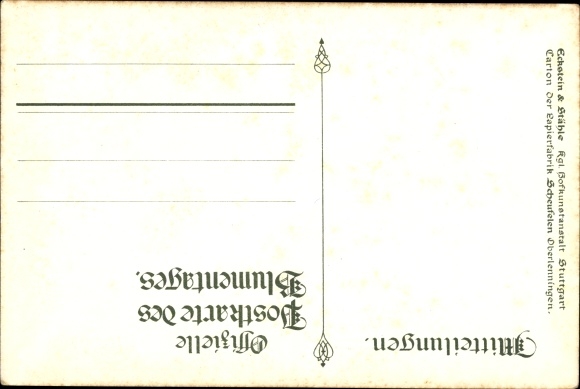 Mitteilungen.
Offizielle
Postkarte des
Blumentages.
Eckstein & Stähle Kgl. Hofkunstanstalt Stuttgart
Carton der Papierfabrik Scheufelen Oberlenningen.